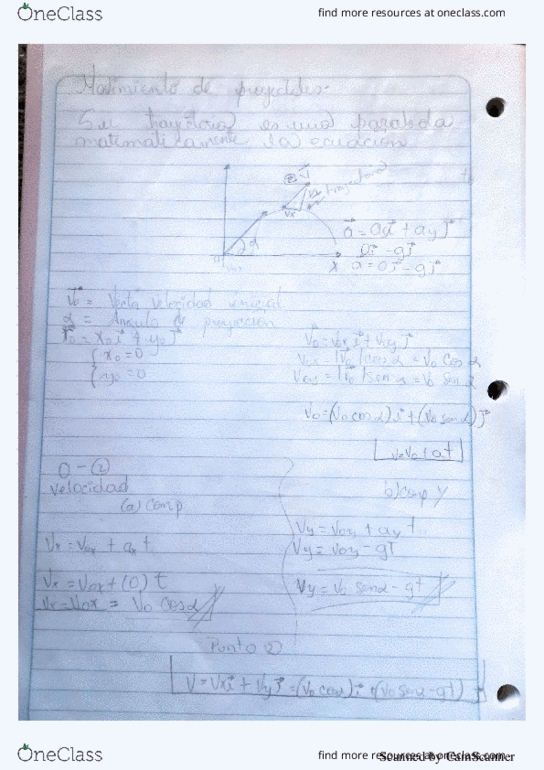 OneClass
find more resources at oneclass.com
Movimiento de proyectiles.
Su trayectoria es una parabola
matematicamente la ecuación
② V⃗
trayectoria
Vx
α
X
a⃗ = axi⃗ + ayj⃗
0i⃗ - gj⃗
a = 0i⃗ - gj⃗
V⃗o = Vector velocidad inicial
α = Angulo de proyección
r⃗o = xoi⃗ + yoj⃗
{ xo = 0
{ yo = 0
V⃗o = Voxi⃗ + Voyj⃗
Vox = |V⃗o| cos α = Vo cos α
Voy = |V⃗o| sen α = Vo sen α
Vo = (Vo cos α) i⃗ + (Vo sen α) j⃗
0 - ②
velocidad
(a) comp
Vx = Vox + ax t
Vx = Vox + (0) t
Vx = Vox = Vo cos α
b) comp y
Vy = Voy + ay t
Vy = Voy - gt
Vy = Vo sen α - gt
Punto ②
V = Vxi⃗ + Vyj⃗ = (Vo cos α) i⃗ + (Vo sen α - gt)
OneClass
find more resources at oneclass.com
Scanned by CamScanner